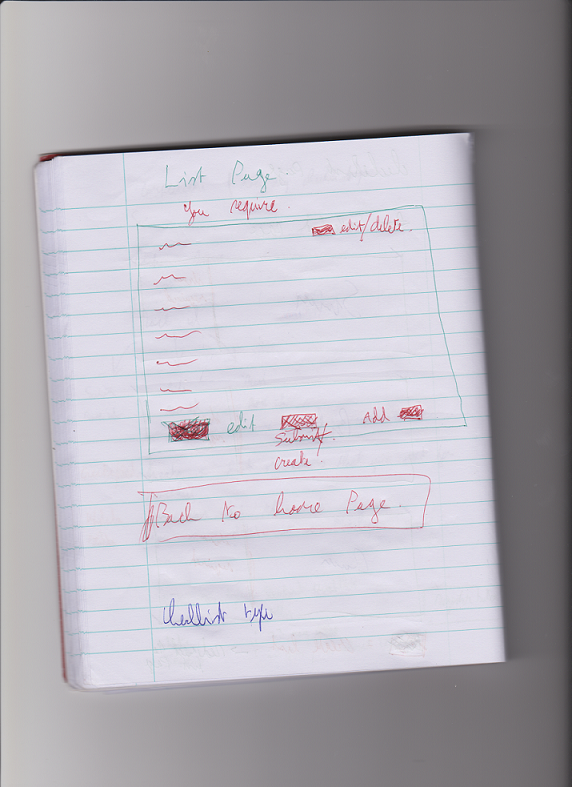 List Page.
You require.
edit/delete.
edit
Add
Submit/
create.
Back to home Page.
checklist type